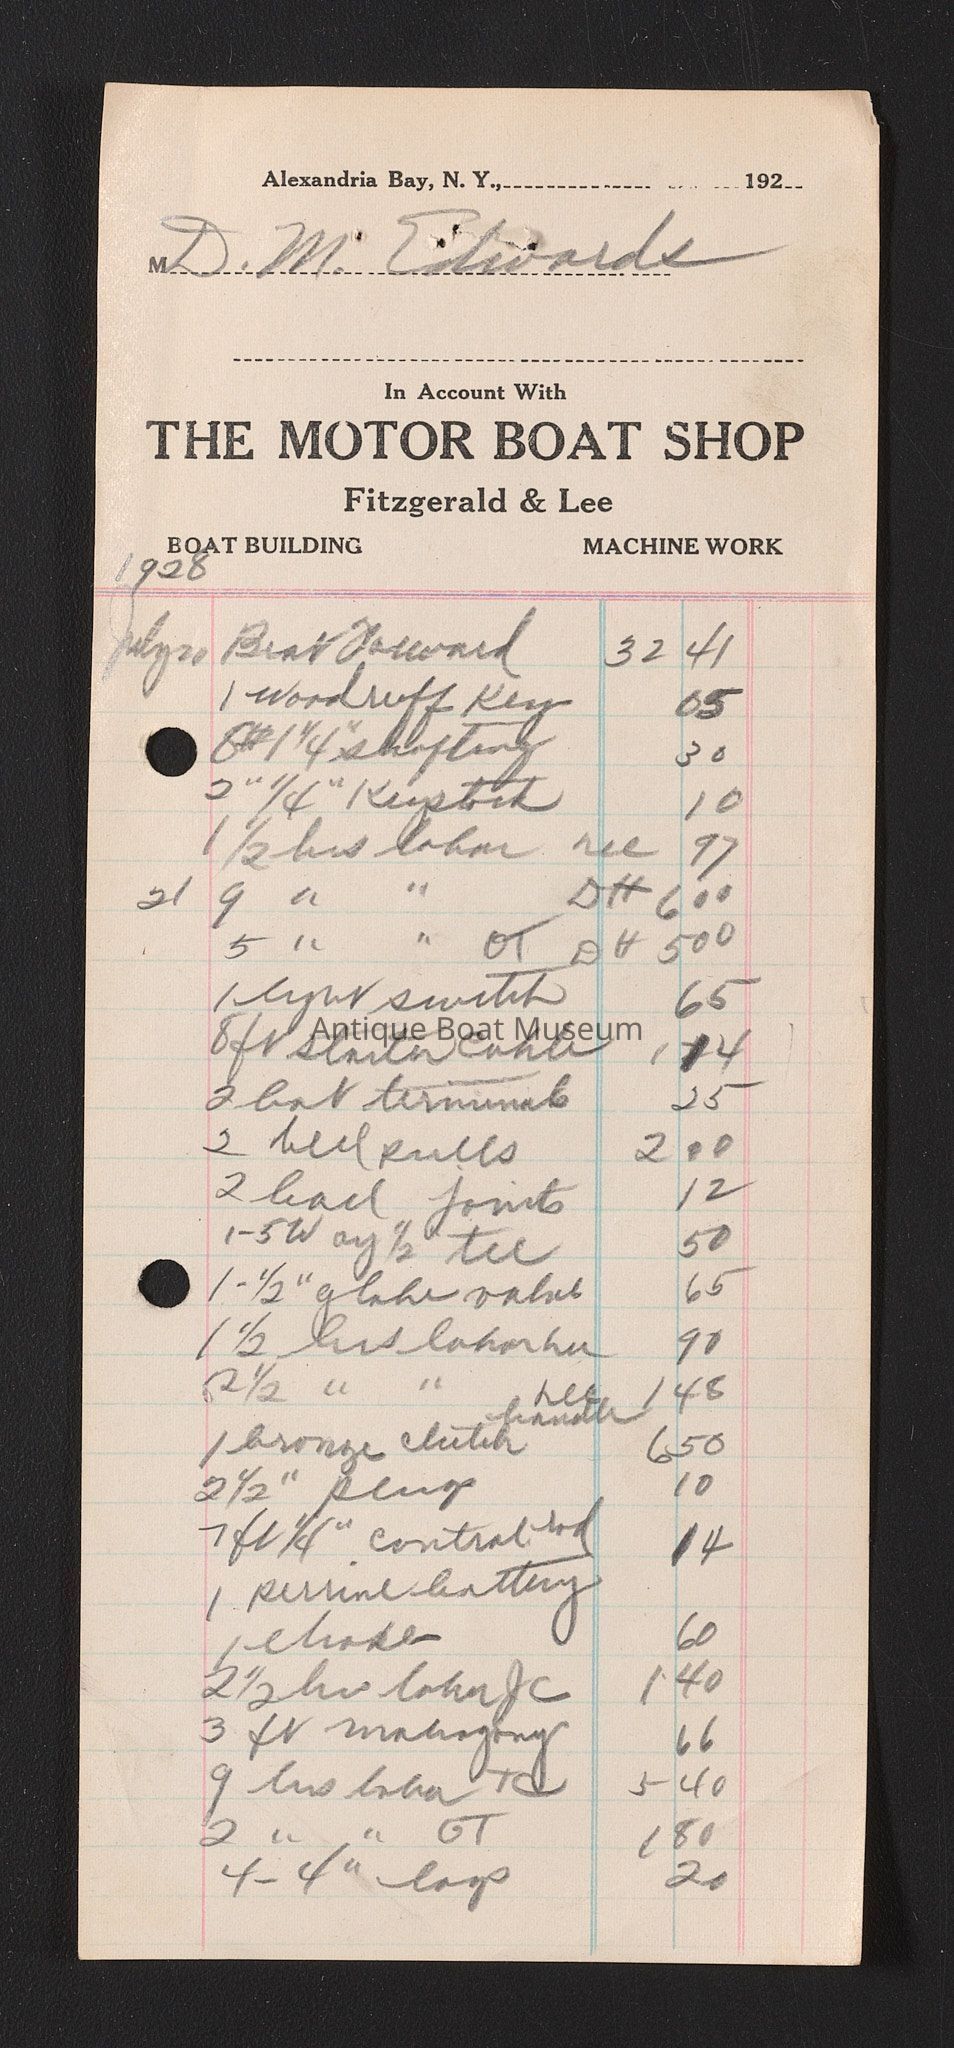 Alexandria Bay, N. Y., 192
M D. M. Edwards
In Account With
THE MOTOR BOAT SHOP
Fitzgerald & Lee
BOAT BUILDING MACHINE WORK
1928
July 20 Forward 32 41
1 Woodruff Key 05
6# 1 1/4" shafting 30
2" 1/4" Keystock 10
1 1/2 hrs labor 97
21 9 " " DH 6 00
5 " " OT DH 5 00
1 light switch 65
8 ft Starter Cable 1 14
Antique Boat Museum
2 bat terminals 25
2 bell pulls 2 00
2 joints 12
1-5W 1/2 tee 50
1-1/2" globe valve 65
1 1/2 hrs labor 90
2 1/2 " " Lee 1 48
1 bronze clutch handle 6 50
2 1/2" plug 10
7 ft 1/4" control rod 14
1 perrine battery
1 choke 60
2 1/2 hrs labor JC 1 40
3 ft mahogany 66
9 hrs labor TC 5 40
2 " " OT 1 80
4-4" 20